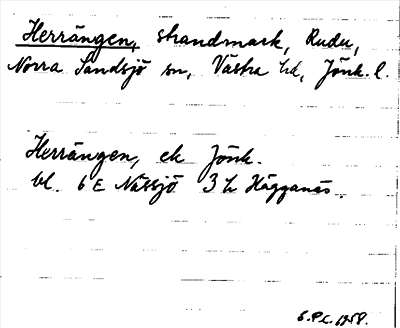 Herrängen, strandmark, Rudu,
Norra Sandsjö sn, Västra hd, Jönk. l.
Herrängen, ek Jönk.
bl. 6 E Nässjö 3 h Hägganäs.
1958.